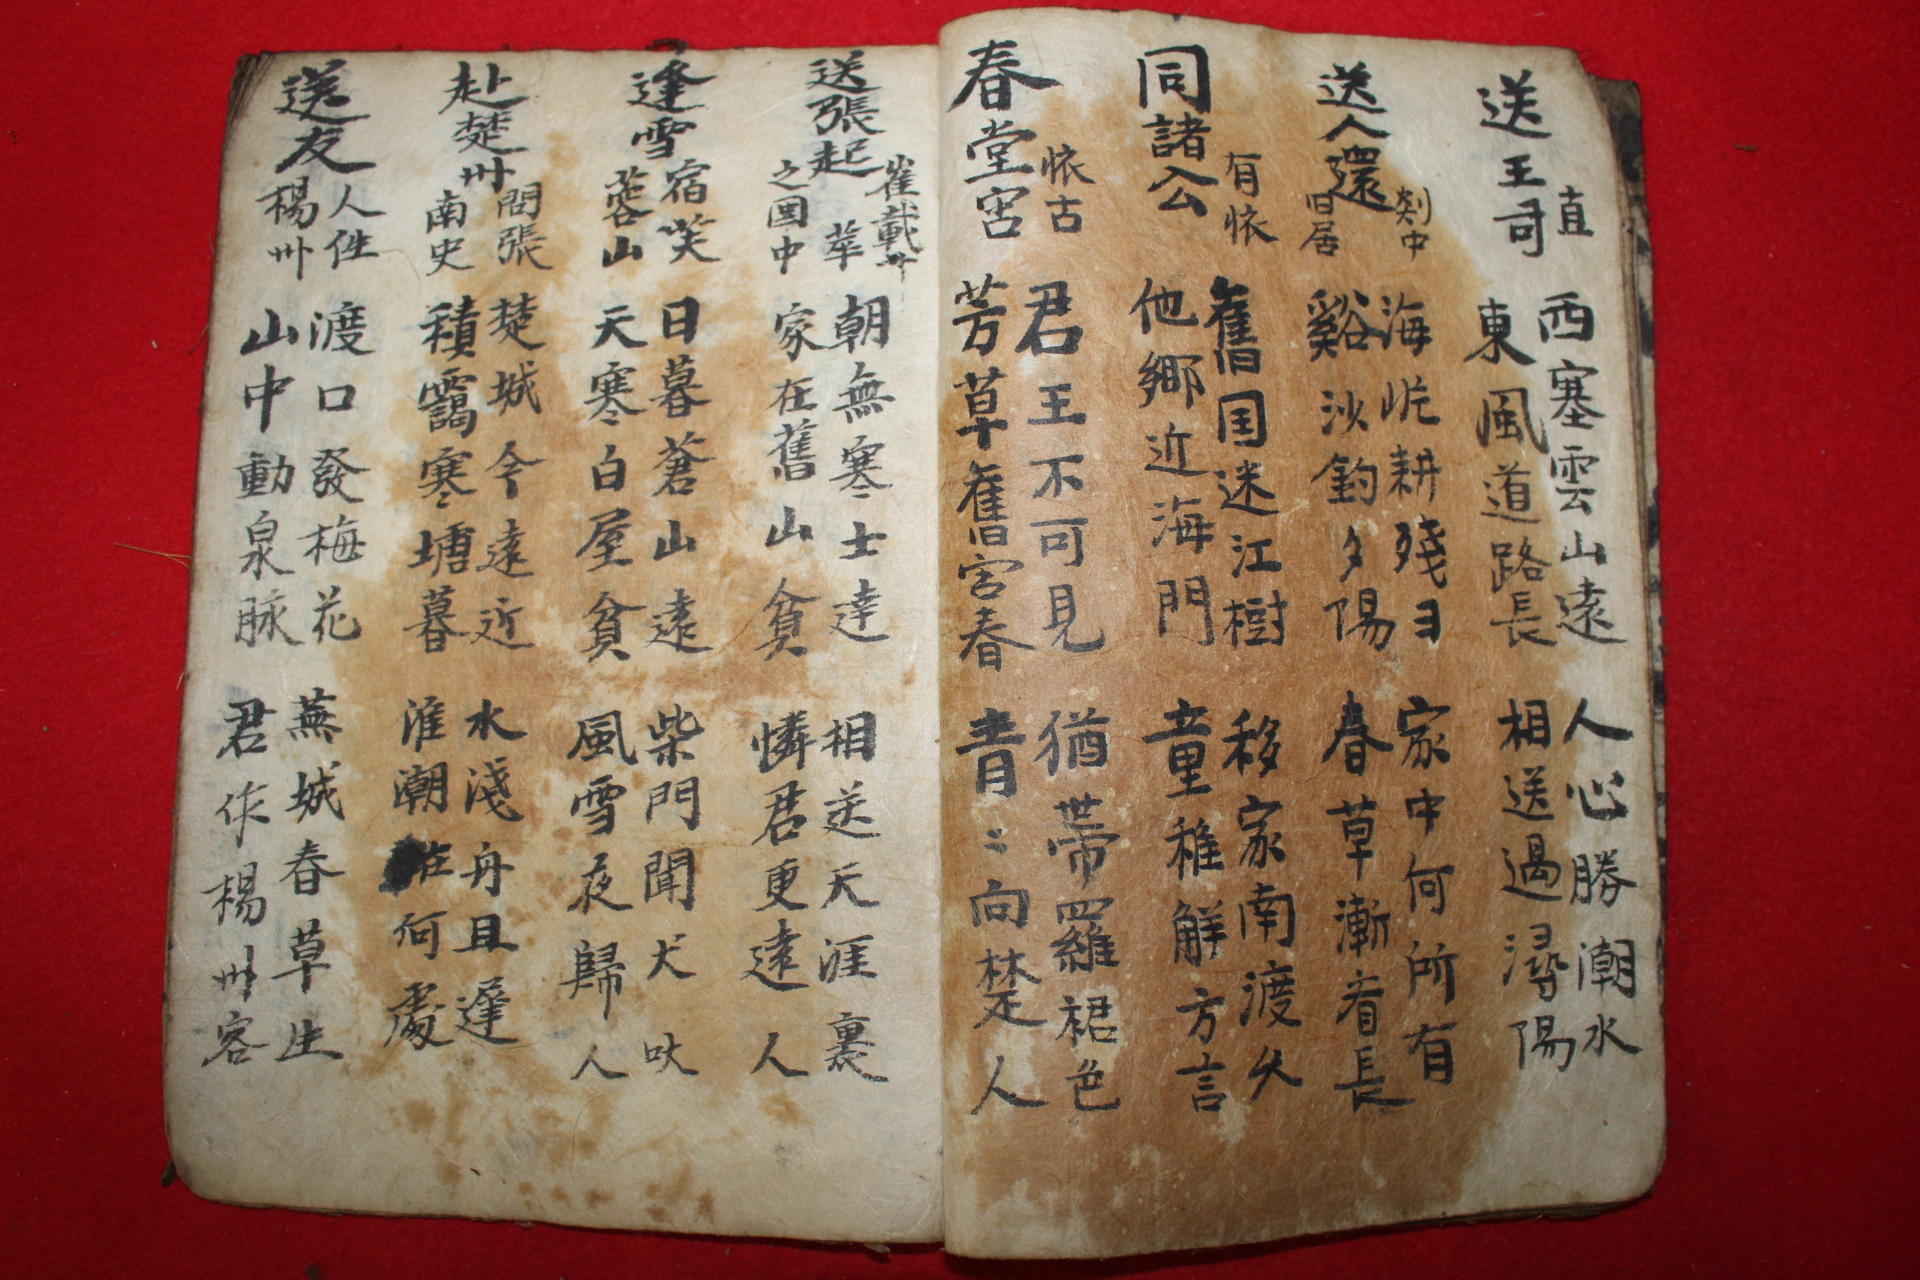 送王司直
西塞雲山遠
東風道路長
人心勝潮水
相送過潯陽
送人還剡中旧居
海圻耕殘日
谿沙釣夕陽
家中何所有
春草漸看長
同諸公有懷
舊国迷江樹
他鄉近海門
移家南渡久
童稚解方言
春堂宮懷古
君王不可見
芳草舊宮春
猶帶羅裙色
青〻向楚人
送張起崔載華之閩中
朝無寒士達
家在舊山貧
相送天涯裏
憐君更遠人
逢雪宿芙蓉山
日暮蒼山遠
天寒白屋貧
柴門聞犬吠
風雪夜歸人
赴楚州問張南史
楚城今遠近
積靄寒塘暮
水淺舟且遲
淮潮在何處
送友人性楊州
渡口發梅花
山中動泉脉
蕪城春草生
君作楊州客